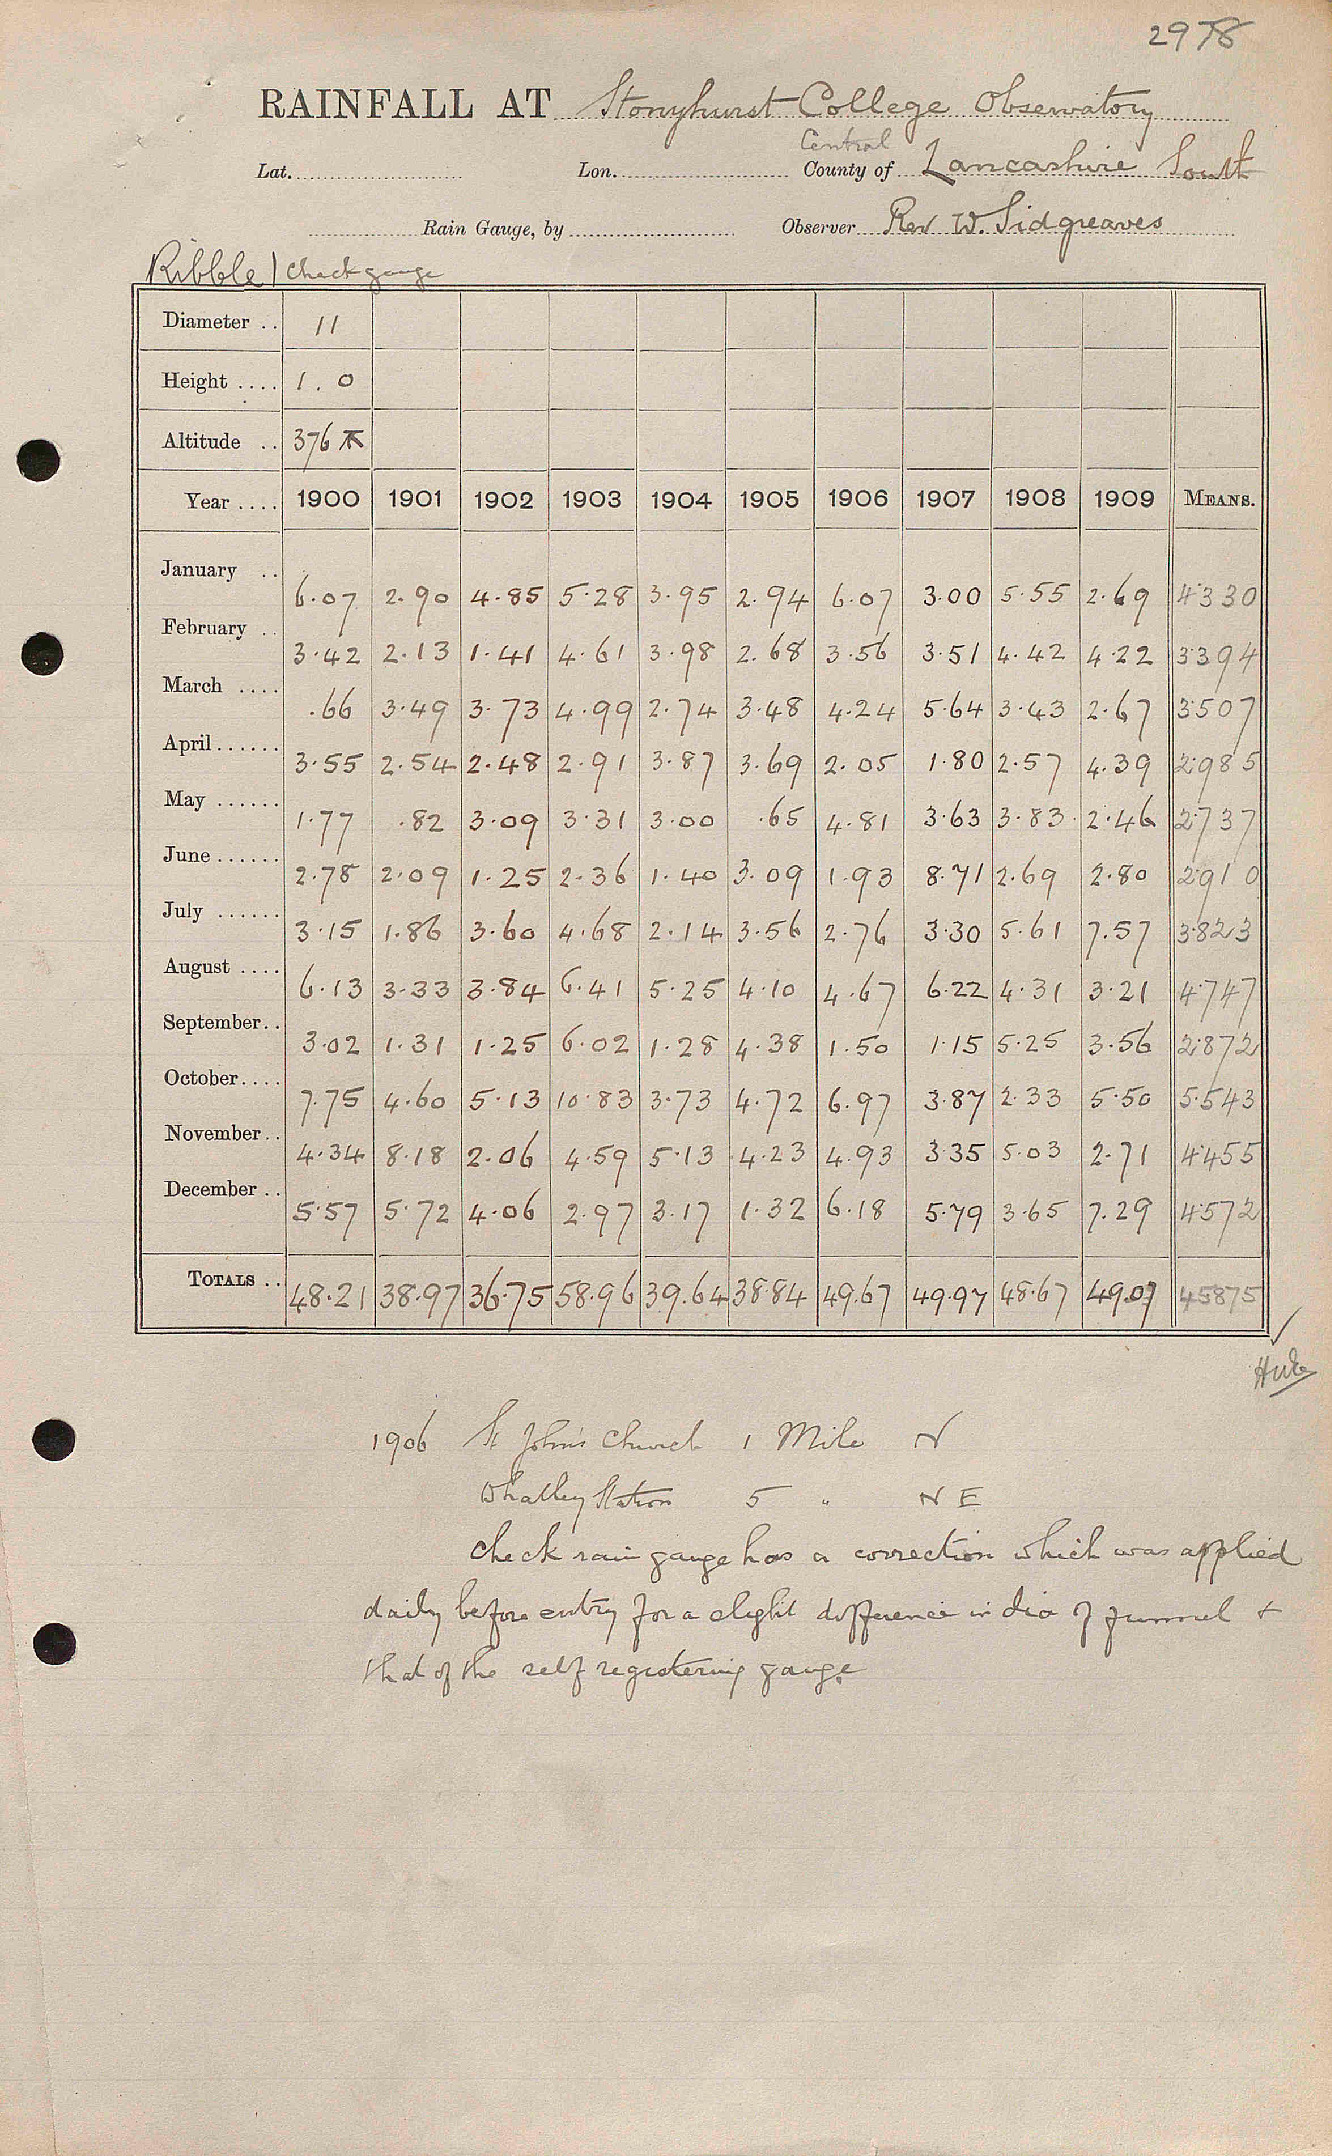 2978
RAINFALL AT Stonyhurst College Observatory
Central
Lat. Lon. County of Lancashire South
Rain Gauge, by Observer Rev W. Sidgreaves
Ribble / Check gauge
Diameter .. 11
Height .... 1.0
Altitude .. 376
Year .... 1900 1901 1902 1903 1904 1905 1906 1907 1908 1909 MEANS.
January .. 6.07 2.90 4.85 5.28 3.95 2.94 6.07 3.00 5.55 2.69 4.330
February .. 3.42 2.13 1.41 4.61 3.98 2.68 3.56 3.51 4.42 4.22 3.394
March .... .66 3.49 3.73 4.99 2.74 3.48 4.24 5.64 3.43 2.67 3.507
April ...... 3.55 2.54 2.48 2.91 3.87 3.69 2.05 1.80 2.57 4.39 2.985
May ...... 1.77 .82 3.09 3.31 3.00 .65 4.81 3.63 3.83 2.46 2.737
June ...... 2.78 2.09 1.25 2.36 1.40 3.09 1.93 8.71 2.69 2.80 2.910
July ...... 3.15 1.86 3.60 4.68 2.14 3.56 2.76 3.30 5.61 7.57 3.823
August .... 6.13 3.33 3.84 6.41 5.25 4.10 4.67 6.22 4.31 3.21 4.747
September.. 3.02 1.31 1.25 6.02 1.28 4.38 1.50 1.15 5.25 3.56 2.872
October.... 7.75 4.60 5.13 10.83 3.73 4.72 6.97 3.87 2.33 5.50 5.543
November.. 4.34 8.18 2.06 4.59 5.13 4.23 4.93 3.35 5.03 2.71 4.455
December .. 5.57 5.72 4.06 2.97 3.17 1.32 6.18 5.79 3.65 7.29 4.572
TOTALS .. 48.21 38.97 36.75 58.96 39.64 38.84 49.67 49.97 48.67 49.07 45.875
1906 St John's Church 1 Mile N
Whalley Station 5 " N E
Check rain gauge has a correction which was applied
daily before entry for a slight difference in dia of funnel &
that of the self registering gauge